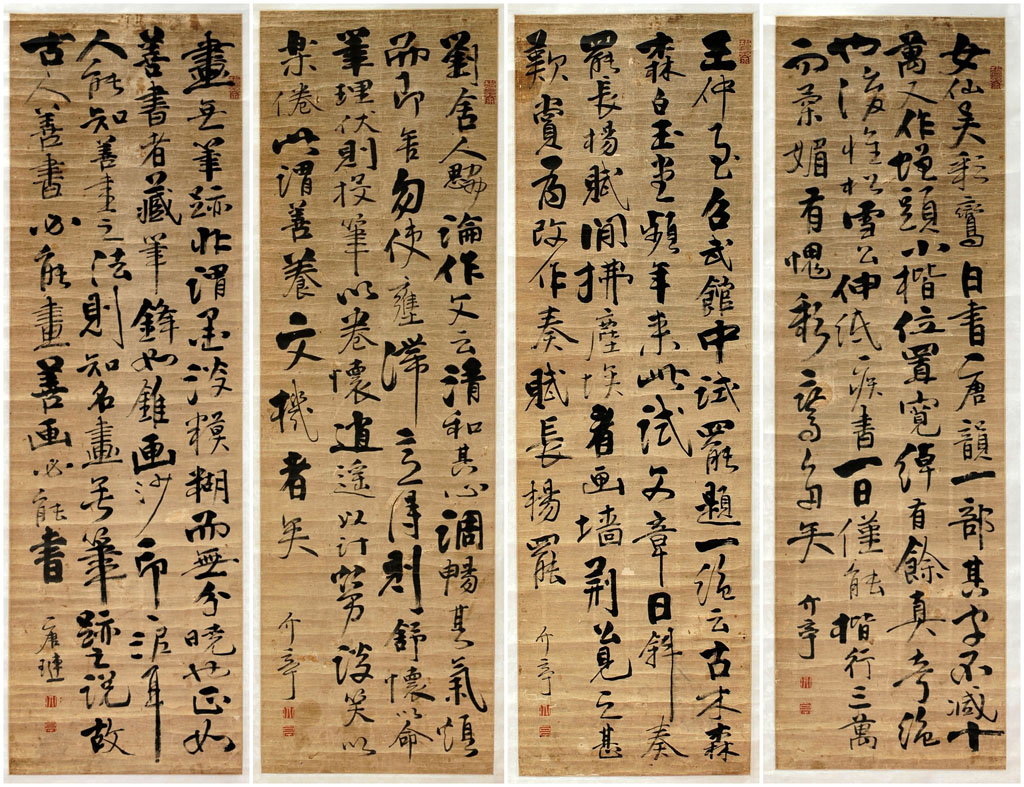 女仙吴彩鸞日書唐韻一部其字不減十
萬又作蠅頭小楷位置寬綽有餘真奇絶
也後惟松雪公伸紙疾書一日僅能楷行三萬
而柔媚有愧彩鸞多矣 介亭
王仲至召試館中試罷題一絶云古木森
森白玉堂頻年來此試文章日斜奏
罷長楊賦閒拂塵埃看画墻荊公見之甚
歎賞為改作奏賦長楊罷 介亭
劉舍人勰論作文云清和其心調暢其氣煩
而即舍勿使壅滯意得則舒懷以命
筆理伏則投筆以卷懷逍遙以針勞談笑以
藥倦此謂善養文機者矣 介亭
畫無筆跡非謂墨淡糢糊而無分曉也正如
善書者藏筆鋒如錐画沙印印泥耳
人能知善書之法則知名畫無筆跡之説故
古人善書必能畫善画必能書 唐璉